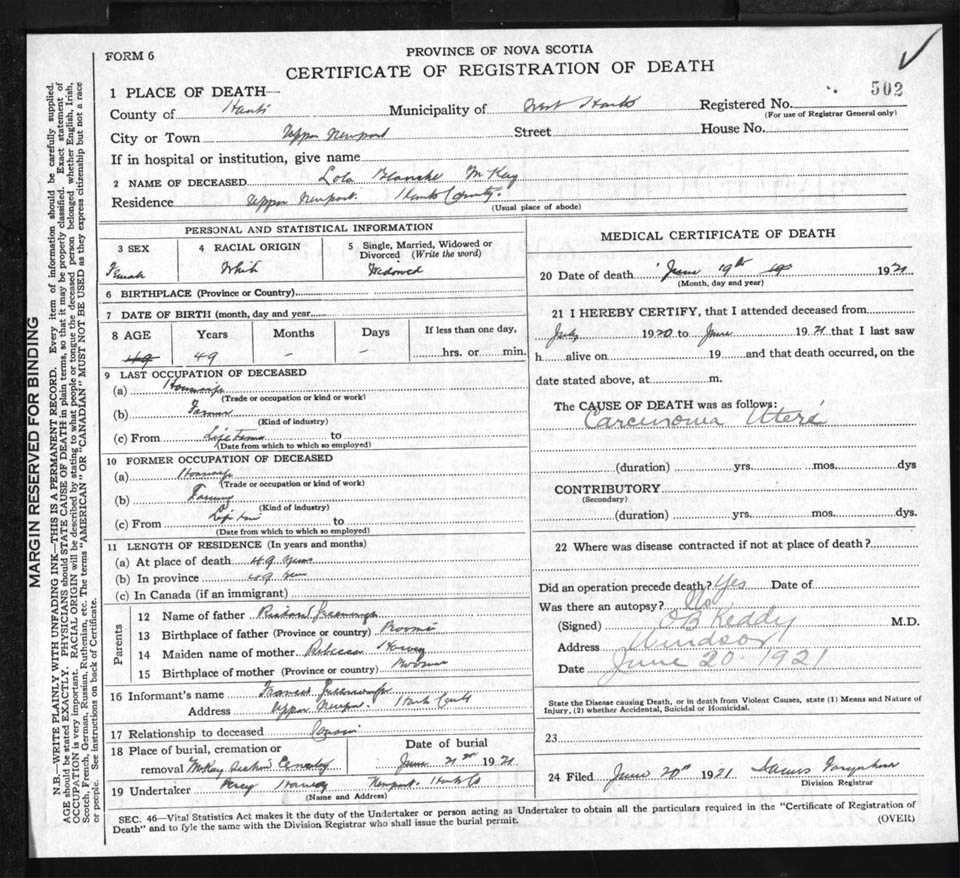 FORM 6
PROVINCE OF NOVA SCOTIA
CERTIFICATE OF REGISTRATION OF DEATH
502
1 PLACE OF DEATH—
County of Hants Municipality of West Hants Registered No.
(For use of Registrar General only)
City or Town Upper Newport Street House No.
If in hospital or institution, give name
2 NAME OF DECEASED Lola Blanche McKay
Residence Upper Newport. Hants County.
(Usual place of abode)
PERSONAL AND STATISTICAL INFORMATION
3 SEX 4 RACIAL ORIGIN 5 Single, Married, Widowed or Divorced (Write the word)
Female White Widowed
6 BIRTHPLACE (Province or Country)
7 DATE OF BIRTH (month, day and year
8 AGE Years Months Days If less than one day,
49 49 – – hrs. or min.
9 LAST OCCUPATION OF DECEASED
(a) Housewife
(Trade or occupation or kind or work)
(b) Farmer
(Kind of industry)
(c) From Life Time to
(Date from which to which so employed)
10 FORMER OCCUPATION OF DECEASED
(a) Housewife
(Trade or occupation or kind of work)
(b) Farming
(Kind of industry)
(c) From Life time to
(Date from which to which so employed)
11 LENGTH OF RESIDENCE (In years and months)
(a) At place of death 49 years
(b) In province 49 years
(c) In Canada (if an immigrant)
Parents
12 Name of father
13 Birthplace of father (Province or country)
14 Maiden name of mother Rebecca Harvey
15 Birthplace of mother (Province or country)
16 Informant's name
Address Upper Newport. Hants County
17 Relationship to deceased Cousin
18 Place of burial, cremation or removal McKay Section Cemetery
Date of burial
June 21st 1921
19 Undertaker Harvey Newport Hants Co
(Name and Address)
MEDICAL CERTIFICATE OF DEATH
20 Date of death June 19th 1921
(Month, day and year)
21 I HEREBY CERTIFY, that I attended deceased from
July 1920 to June 1921 that I last saw
h alive on 19 and that death occurred, on the
date stated above, at m.
The CAUSE OF DEATH was as follows:
Carcinoma Uteri
(duration) yrs. mos. dys
CONTRIBUTORY
(Secondary)
(duration) yrs. mos. dys.
22 Where was disease contracted if not at place of death?
Did an operation precede death? Yes Date of
Was there an autopsy? No
(Signed) OB Keddy M.D.
Address Windsor
Date June 20 1921
State the Disease causing Death, or in death from Violent Causes, state (1) Means and Nature of
Injury, (2) whether Accidental, Suicidal or Homicidal.
23
24 Filed June 20th 1921
Division Registrar
SEC. 46—Vital Statistics Act makes it the duty of the Undertaker or person acting as Undertaker to obtain all the particulars required in the "Certificate of Registration of
Death" and to fyle the same with the Division Registrar who shall issue the burial permit.
(OVER)
MARGIN RESERVED FOR BINDING
N.B.—WRITE PLAINLY WITH UNFADING INK—THIS IS A PERMANENT RECORD. Every item of information should be carefully supplied.
AGE should be stated EXACTLY. PHYSICIANS should STATE CAUSE OF DEATH in plain terms, so that it may be properly classified. Exact statement of
OCCUPATION is very important. RACIAL ORIGIN will be described by stating to what people or tongue the deceased person belonged whether English, Irish,
Scotch, French, German, Russian, Ruthenian, etc. The terms "AMERICAN" OR "CANADIAN" MUST NOT BE USED as they express citizenship but not a race
or people. See instructions on back of Certificate.